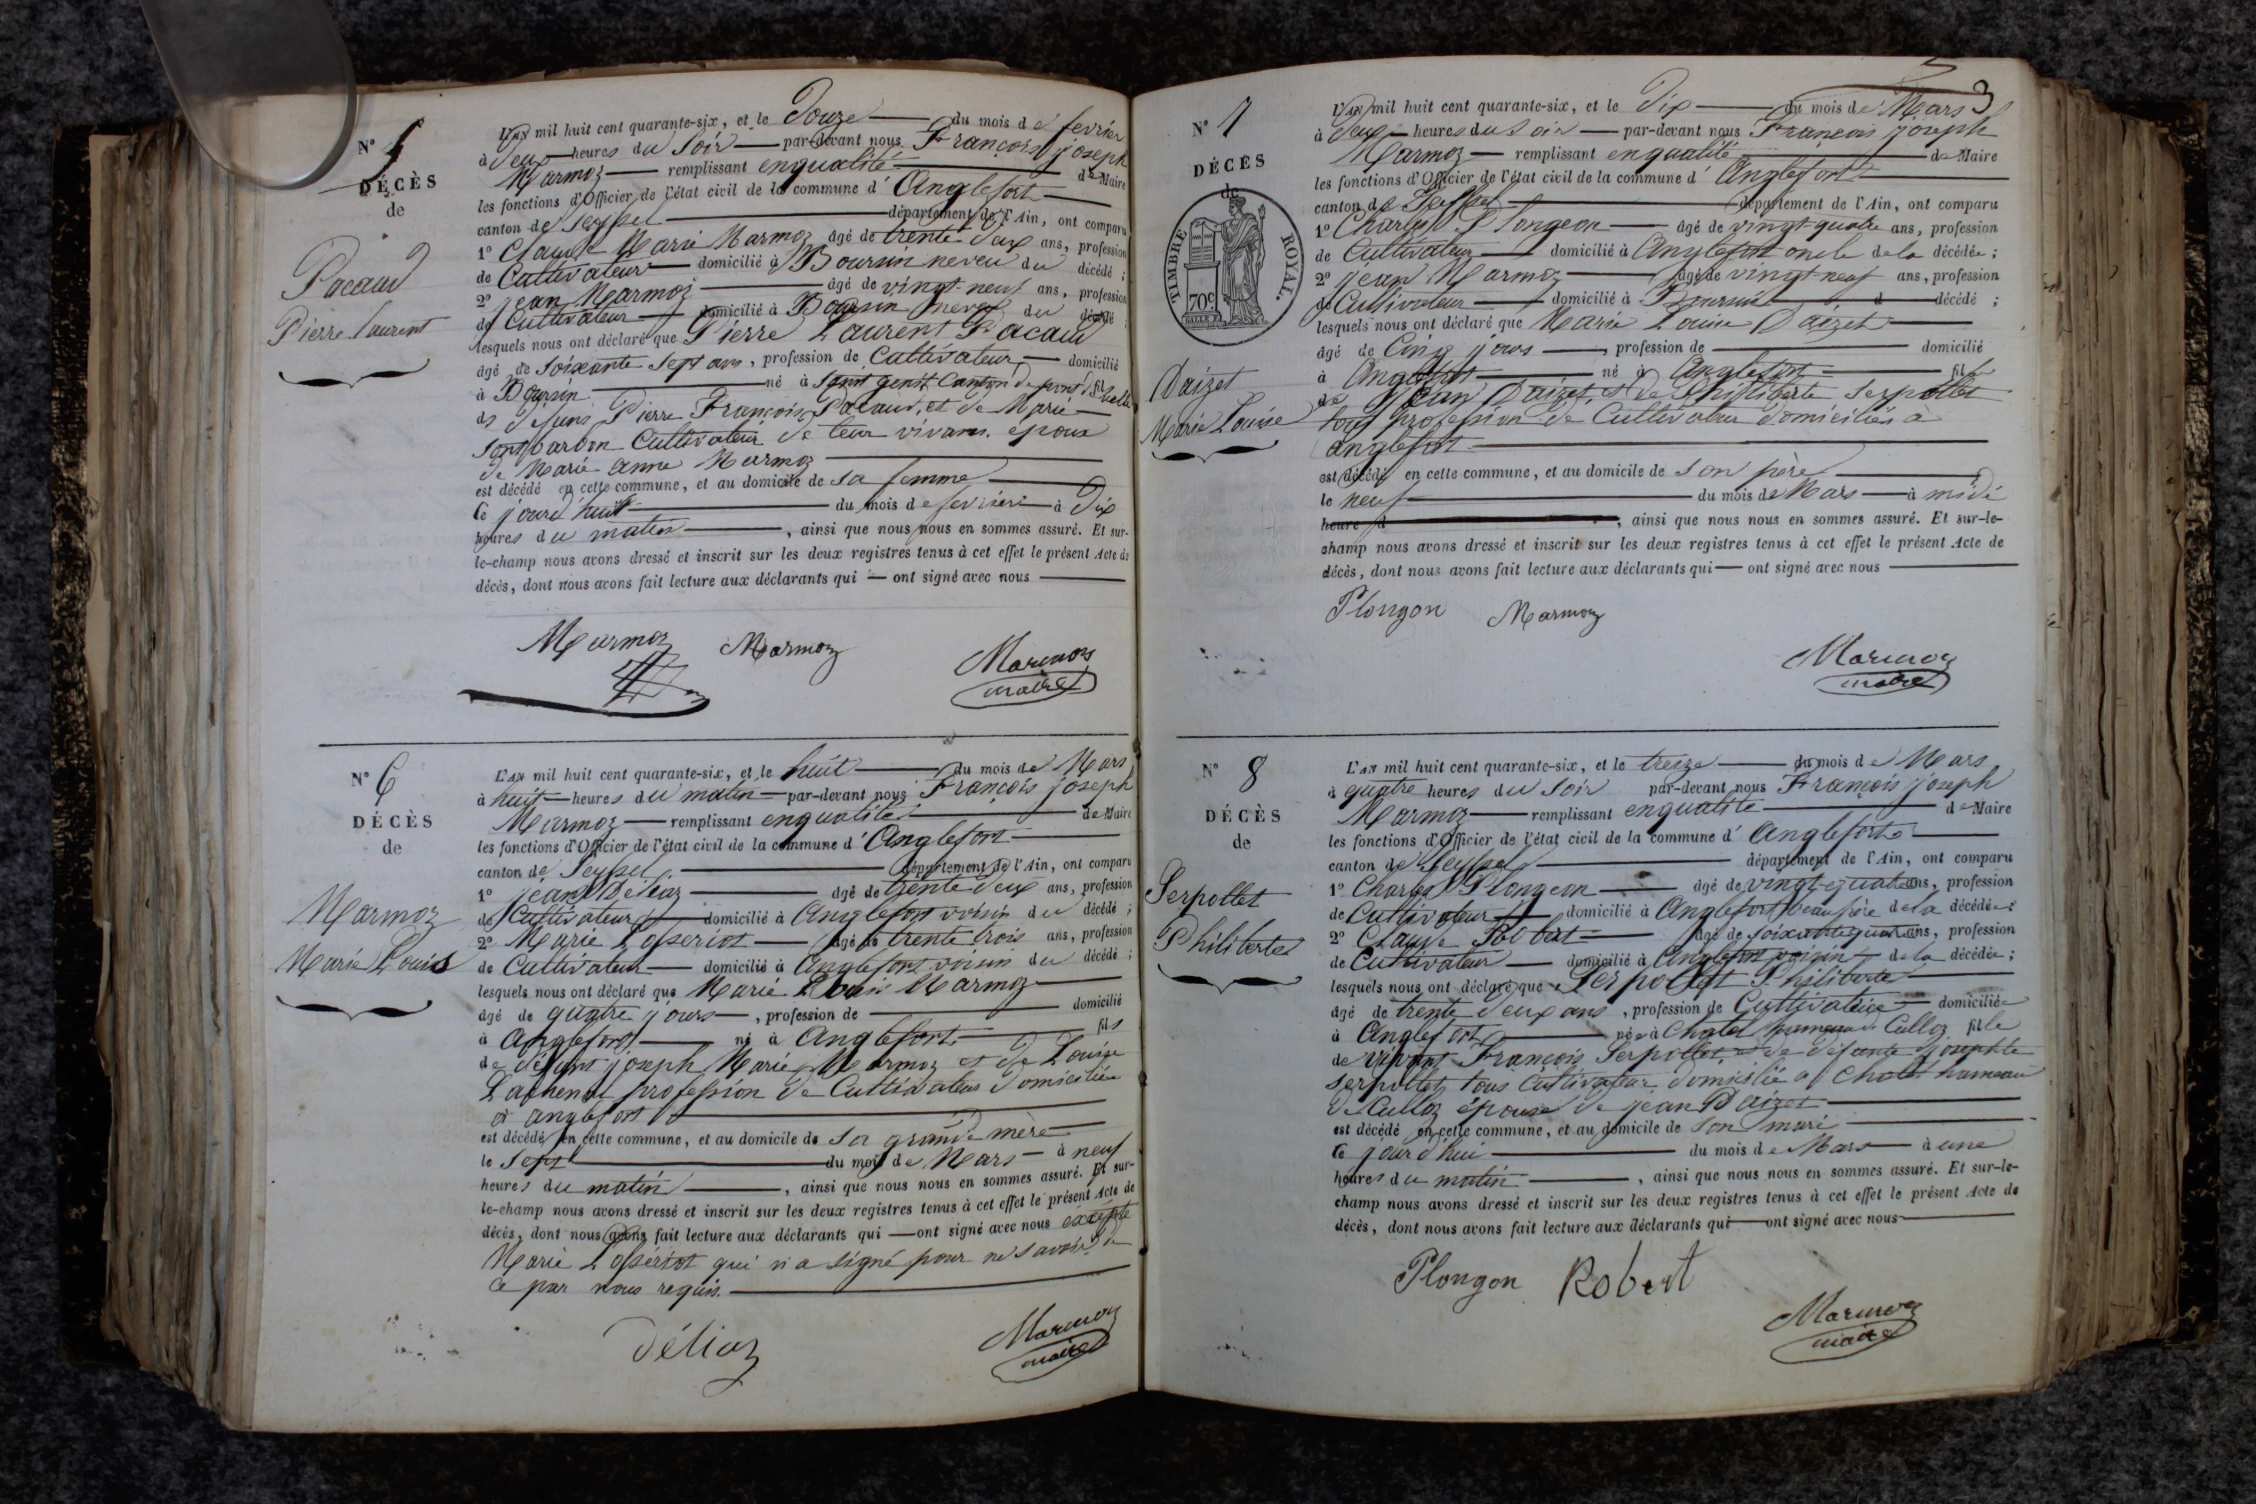 N° 5
DÉCÈS
de
Pacaud
Pierre Laurent
L'AN mil huit cent quarante-six, et le Douze du mois de fevrier
à Deux heures du Soir par-devant nous François joseph
Marmoz remplissant enqualité de Maire
les fonctions d'Officier de l'état civil de la commune d'Anglefort
canton de Seyssel département de l'Ain, ont comparu
1° Claude Marie Marmoz âgé de trente Deux ans, profession
de Cultivateur domicilié à Boursin neveu du décédé ;
2° jean Marmoz âgé de vingt-neuf ans, profession
de Cultivateur domicilié à Boursin neveu du décédé ;
lesquels nous ont déclaré que Pierre Laurent Pacaud
âgé de Soixante Sept ans, profession de Cultivateur domicilié
à Boursin né à Saint genit Canton de fils
de défuns Pierre François Pacaud, et de Marie
Cultivateur de leur vivans. époux
de Marie Anne Marmoz
est décédé en cette commune, et au domicile de sa femme
Ce jourd'huit du mois de fevrier à Dix
heures du matin, ainsi que nous nous en sommes assuré. Et sur-
le-champ nous avons dressé et inscrit sur les deux registres tenus à cet effet le présent Acte de
décès, dont nous avons fait lecture aux déclarants qui — ont signé avec nous
Marmoz Marmoz Marmoz
maire
N° 6
DÉCÈS
de
Marmoz
Marie Louis
L'AN mil huit cent quarante-six, et le huit du mois de Mars
à huit heures du matin par-devant nous François joseph
Marmoz remplissant enqualité de Maire
les fonctions d'Officier de l'état civil de la commune d'Anglefort
canton de Seyssel département de l'Ain, ont comparu
1° jean Déliaz âgé de trente Deux ans, profession
de Cultivateur domicilié à Anglefort voisin du décédé ;
2° Marie âgé de trente trois ans, profession
de Cultivateur domicilié à Anglefort voisin du décédé ;
lesquels nous ont déclaré que Marie Louis Marmoz
âgé de quatre jours, profession de domicilié
à Anglefort né à Anglefort fils
de défunt joseph Marie Marmoz et de Louise
profession de Cultivateur domiciliée
à anglefort
est décédé en cette commune, et au domicile de sa grande mère
le Sept du mois de Mars à neuf
heures du matin, ainsi que nous nous en sommes assuré. Et sur-
le-champ nous avons dressé et inscrit sur les deux registres tenus à cet effet le présent Acte de
décès, dont nous avons fait lecture aux déclarants qui — ont signé avec nous excepté
Marie qui n'a signé pour ne savoir de
ce par nous requis.
Déliaz Marmoz
maire
3
N° 7
DÉCÈS
de
TIMBRE ROYAL.
70c
Daizet
Marie Louise
L'AN mil huit cent quarante-six, et le Dix du mois de Mars
à Deux heures du Soir par-devant nous François joseph
Marmoz remplissant enqualité de Maire
les fonctions d'Officier de l'état civil de la commune d'Anglefort
canton de Seyssel département de l'Ain, ont comparu
1° Charles Plongeon âgé de vingt quatre ans, profession
de Cultivateur domicilié à Anglefort oncle de la décédée ;
2° jean Marmoz âgé de vingt neuf ans, profession
de Cultivateur domicilié à Boursin d décédé ;
lesquels nous ont déclaré que Marie Louise Daizet
âgé de Cinq jours, profession de domicilié
à Anglefort né à Anglefort fil
de Jean Daizet, et de Philiberte Serpollet
tous profession de Cultivateur domiciliés à
anglefort
est décédé en cette commune, et au domicile de son père
le neuf du mois de Mars à midi
heure d, ainsi que nous nous en sommes assuré. Et sur-le-
champ nous avons dressé et inscrit sur les deux registres tenus à cet effet le présent Acte de
décès, dont nous avons fait lecture aux déclarants qui — ont signé avec nous
Plongon Marmoz
Marmoz
maire
N° 8
DÉCÈS
de
Serpollet
Philiberte
L'AN mil huit cent quarante-six, et le treize du mois de Mars
à quatre heures du Soir par-devant nous François joseph
Marmoz remplissant enqualité de Maire
les fonctions d'Officier de l'état civil de la commune d'Anglefort
canton de Seyssel département de l'Ain, ont comparu
1° Charles Plongeon âgé de vingt-quatre ans, profession
de Cultivateur domicilié à Anglefort beaufrère de la décédée ;
2° Claude Robert âgé de soixante quatre ans, profession
de Cultivateur domicilié à Anglefort voisin de la décédée ;
lesquels nous ont déclaré que Serpollet Philiberte
âgé de trente Deux ans, profession de Cultivatrice domiciliée
à Anglefort née à Chatel hameau de Culloz fille
de vivant François Serpollet et de défunte josephte
Serpollet tous Cultivateur domicilié à Chatel hameau
de Culloz épouse de jean Daizet
est décédé en cette commune, et au domicile de Son mari
Ce jour d'hui du mois de Mars à une
heures du matin, ainsi que nous nous en sommes assuré. Et sur-le-
champ nous avons dressé et inscrit sur les deux registres tenus à cet effet le présent Acte de
décès, dont nous avons fait lecture aux déclarants qui — ont signé avec nous
Plongon Robert
Marmoz
maire